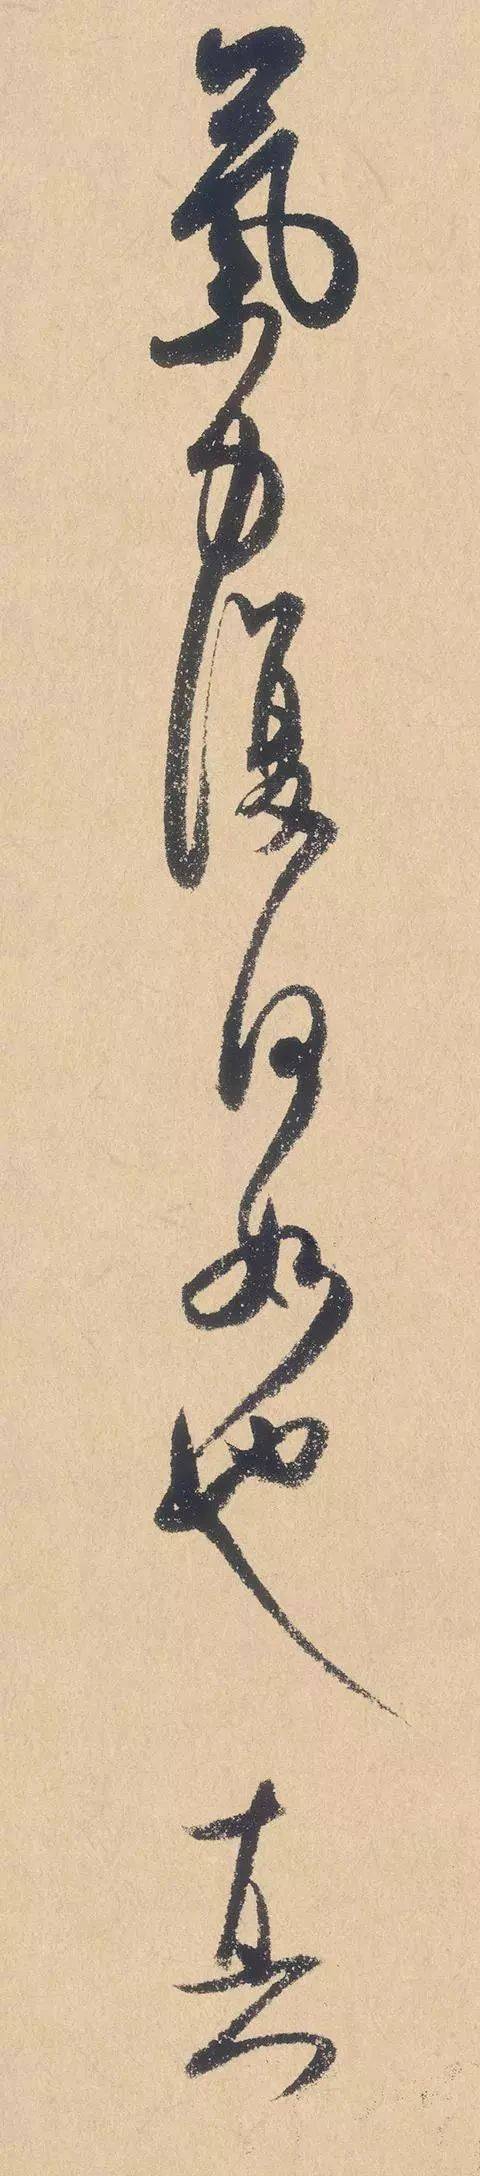 氣力復何如也真